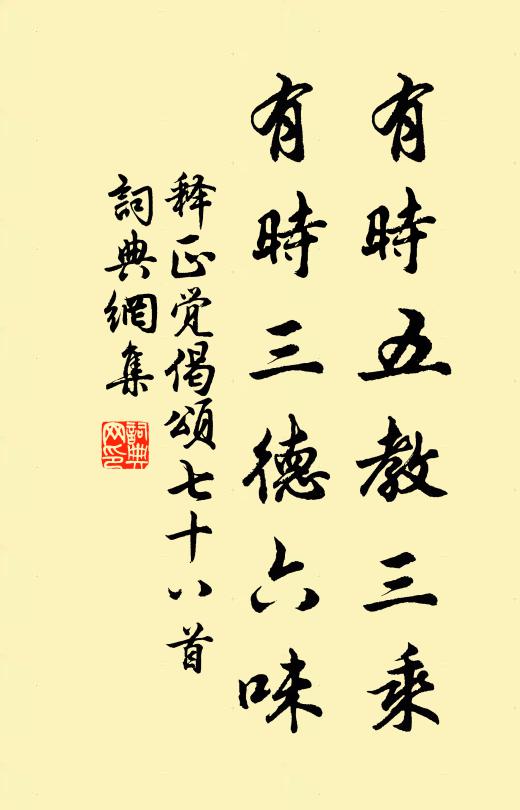 有時五教三乘
有時三德六味
释正觉偈頌七十八首
詞典網集
詞典
网印